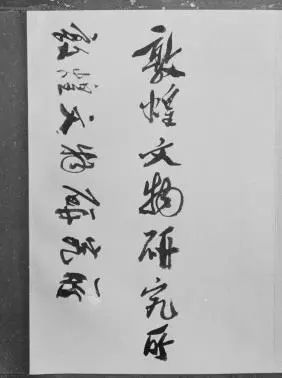 敦煌文物研究所
敦煌文物研究所